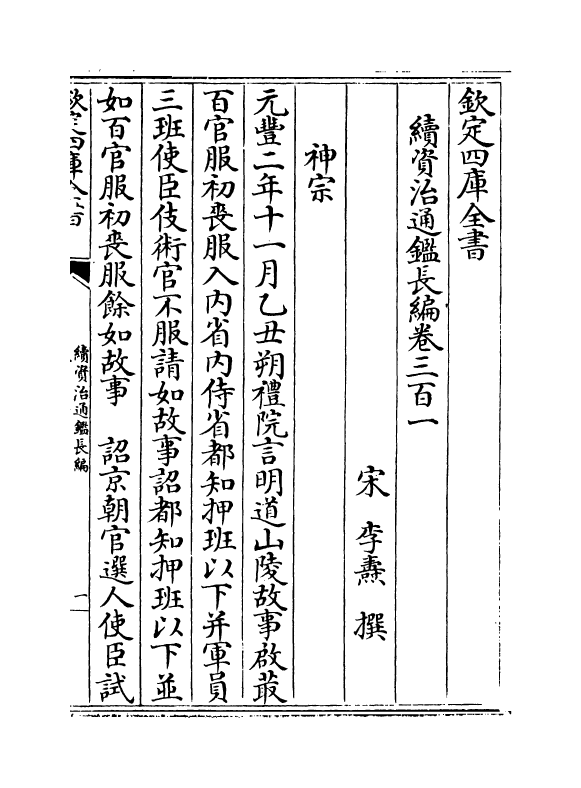 欽定四庫全書
續資治通鑑長編卷三百一
宋 李燾 撰
神宗
元豐二年十一月乙丑朔禮院言明道山陵故事啟菆
百官服初喪服入内省内侍省都知押班以下并軍員
三班使臣伎術官不服請如故事詔都知押班以下並
如百官服初喪服餘如故事 詔京朝官選人使臣試
欽定四庫全書
續資治通鑑長編
一